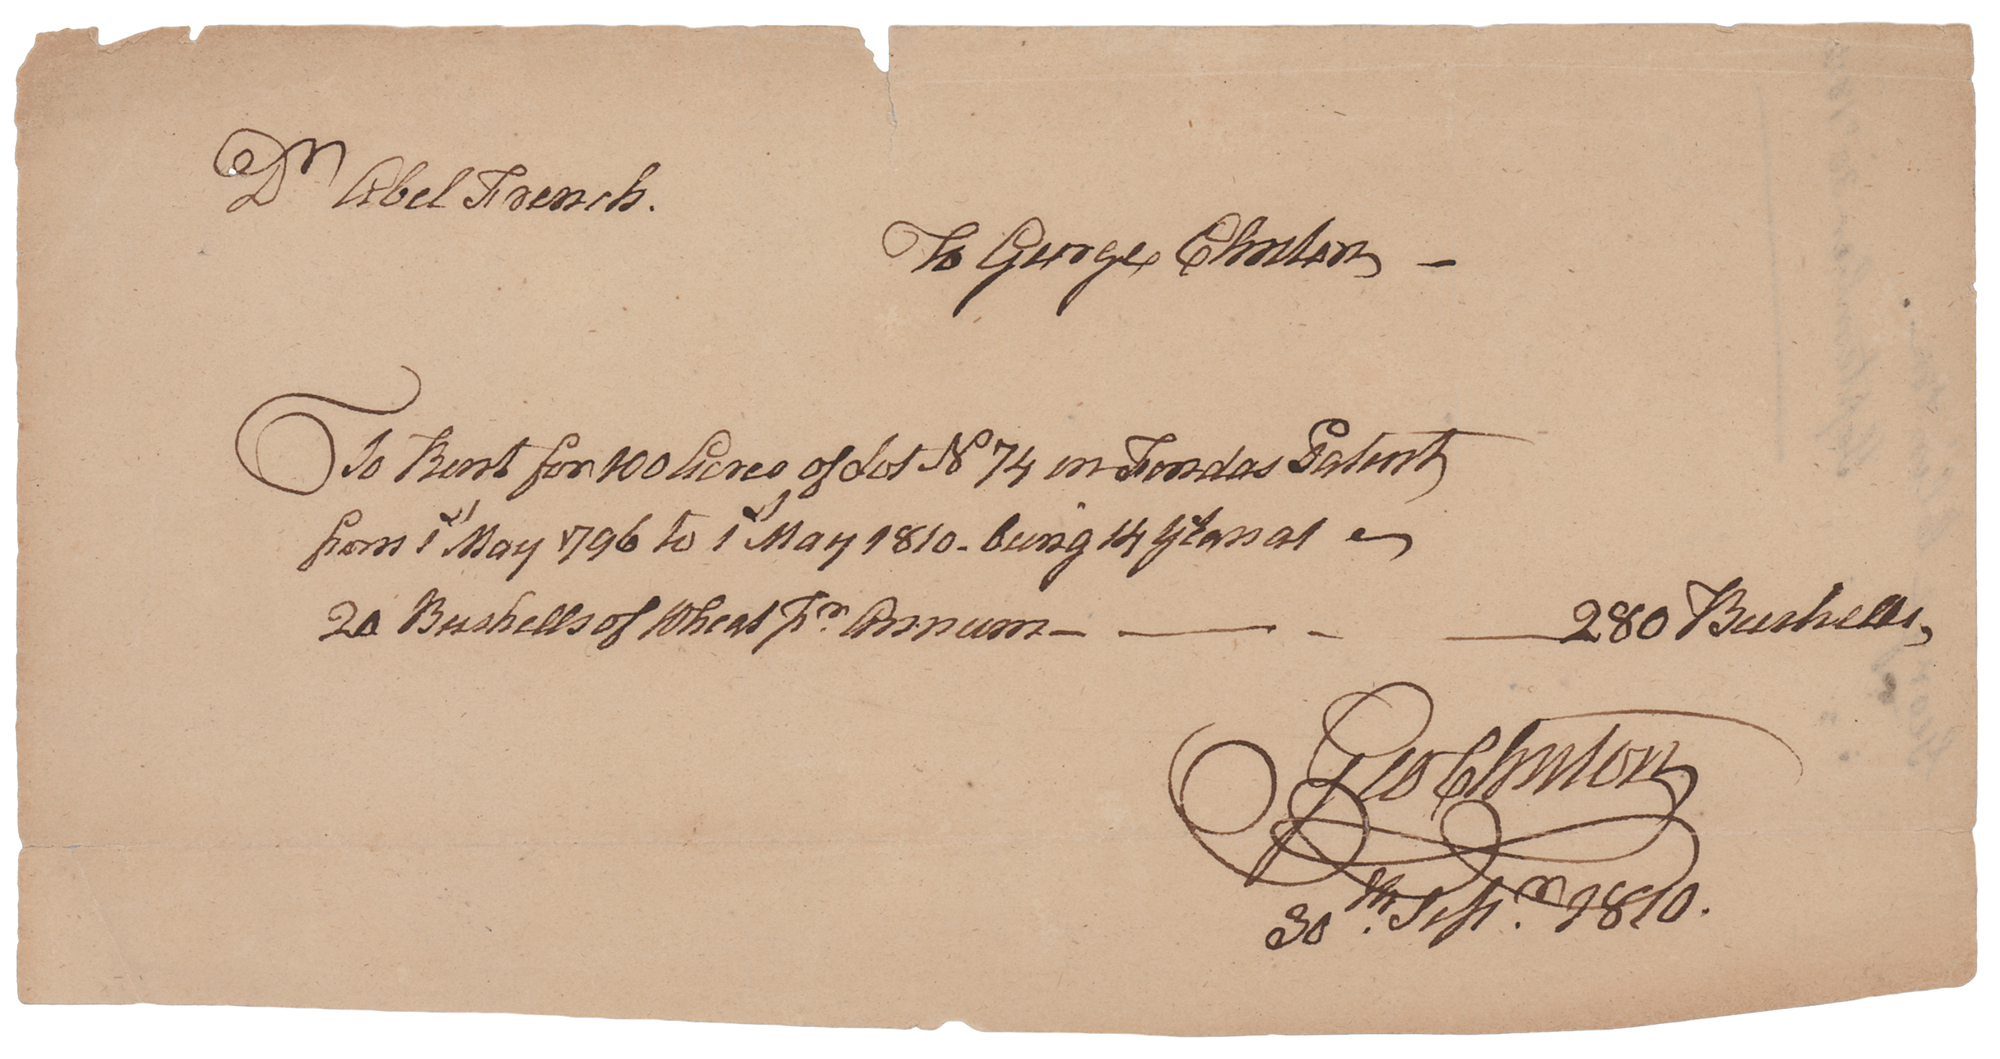 Dr Abel French.
To George Clinton —
To Rent for 100 Acres of Lot No 74 in Fondas Patent
from 1st May 1796 to 1st May 1810. being 14 Years at
20 Bushells of Wheat pr. Annum — — - — 280 Bushells,
Geo Clinton
30th. Sepr. 1810.